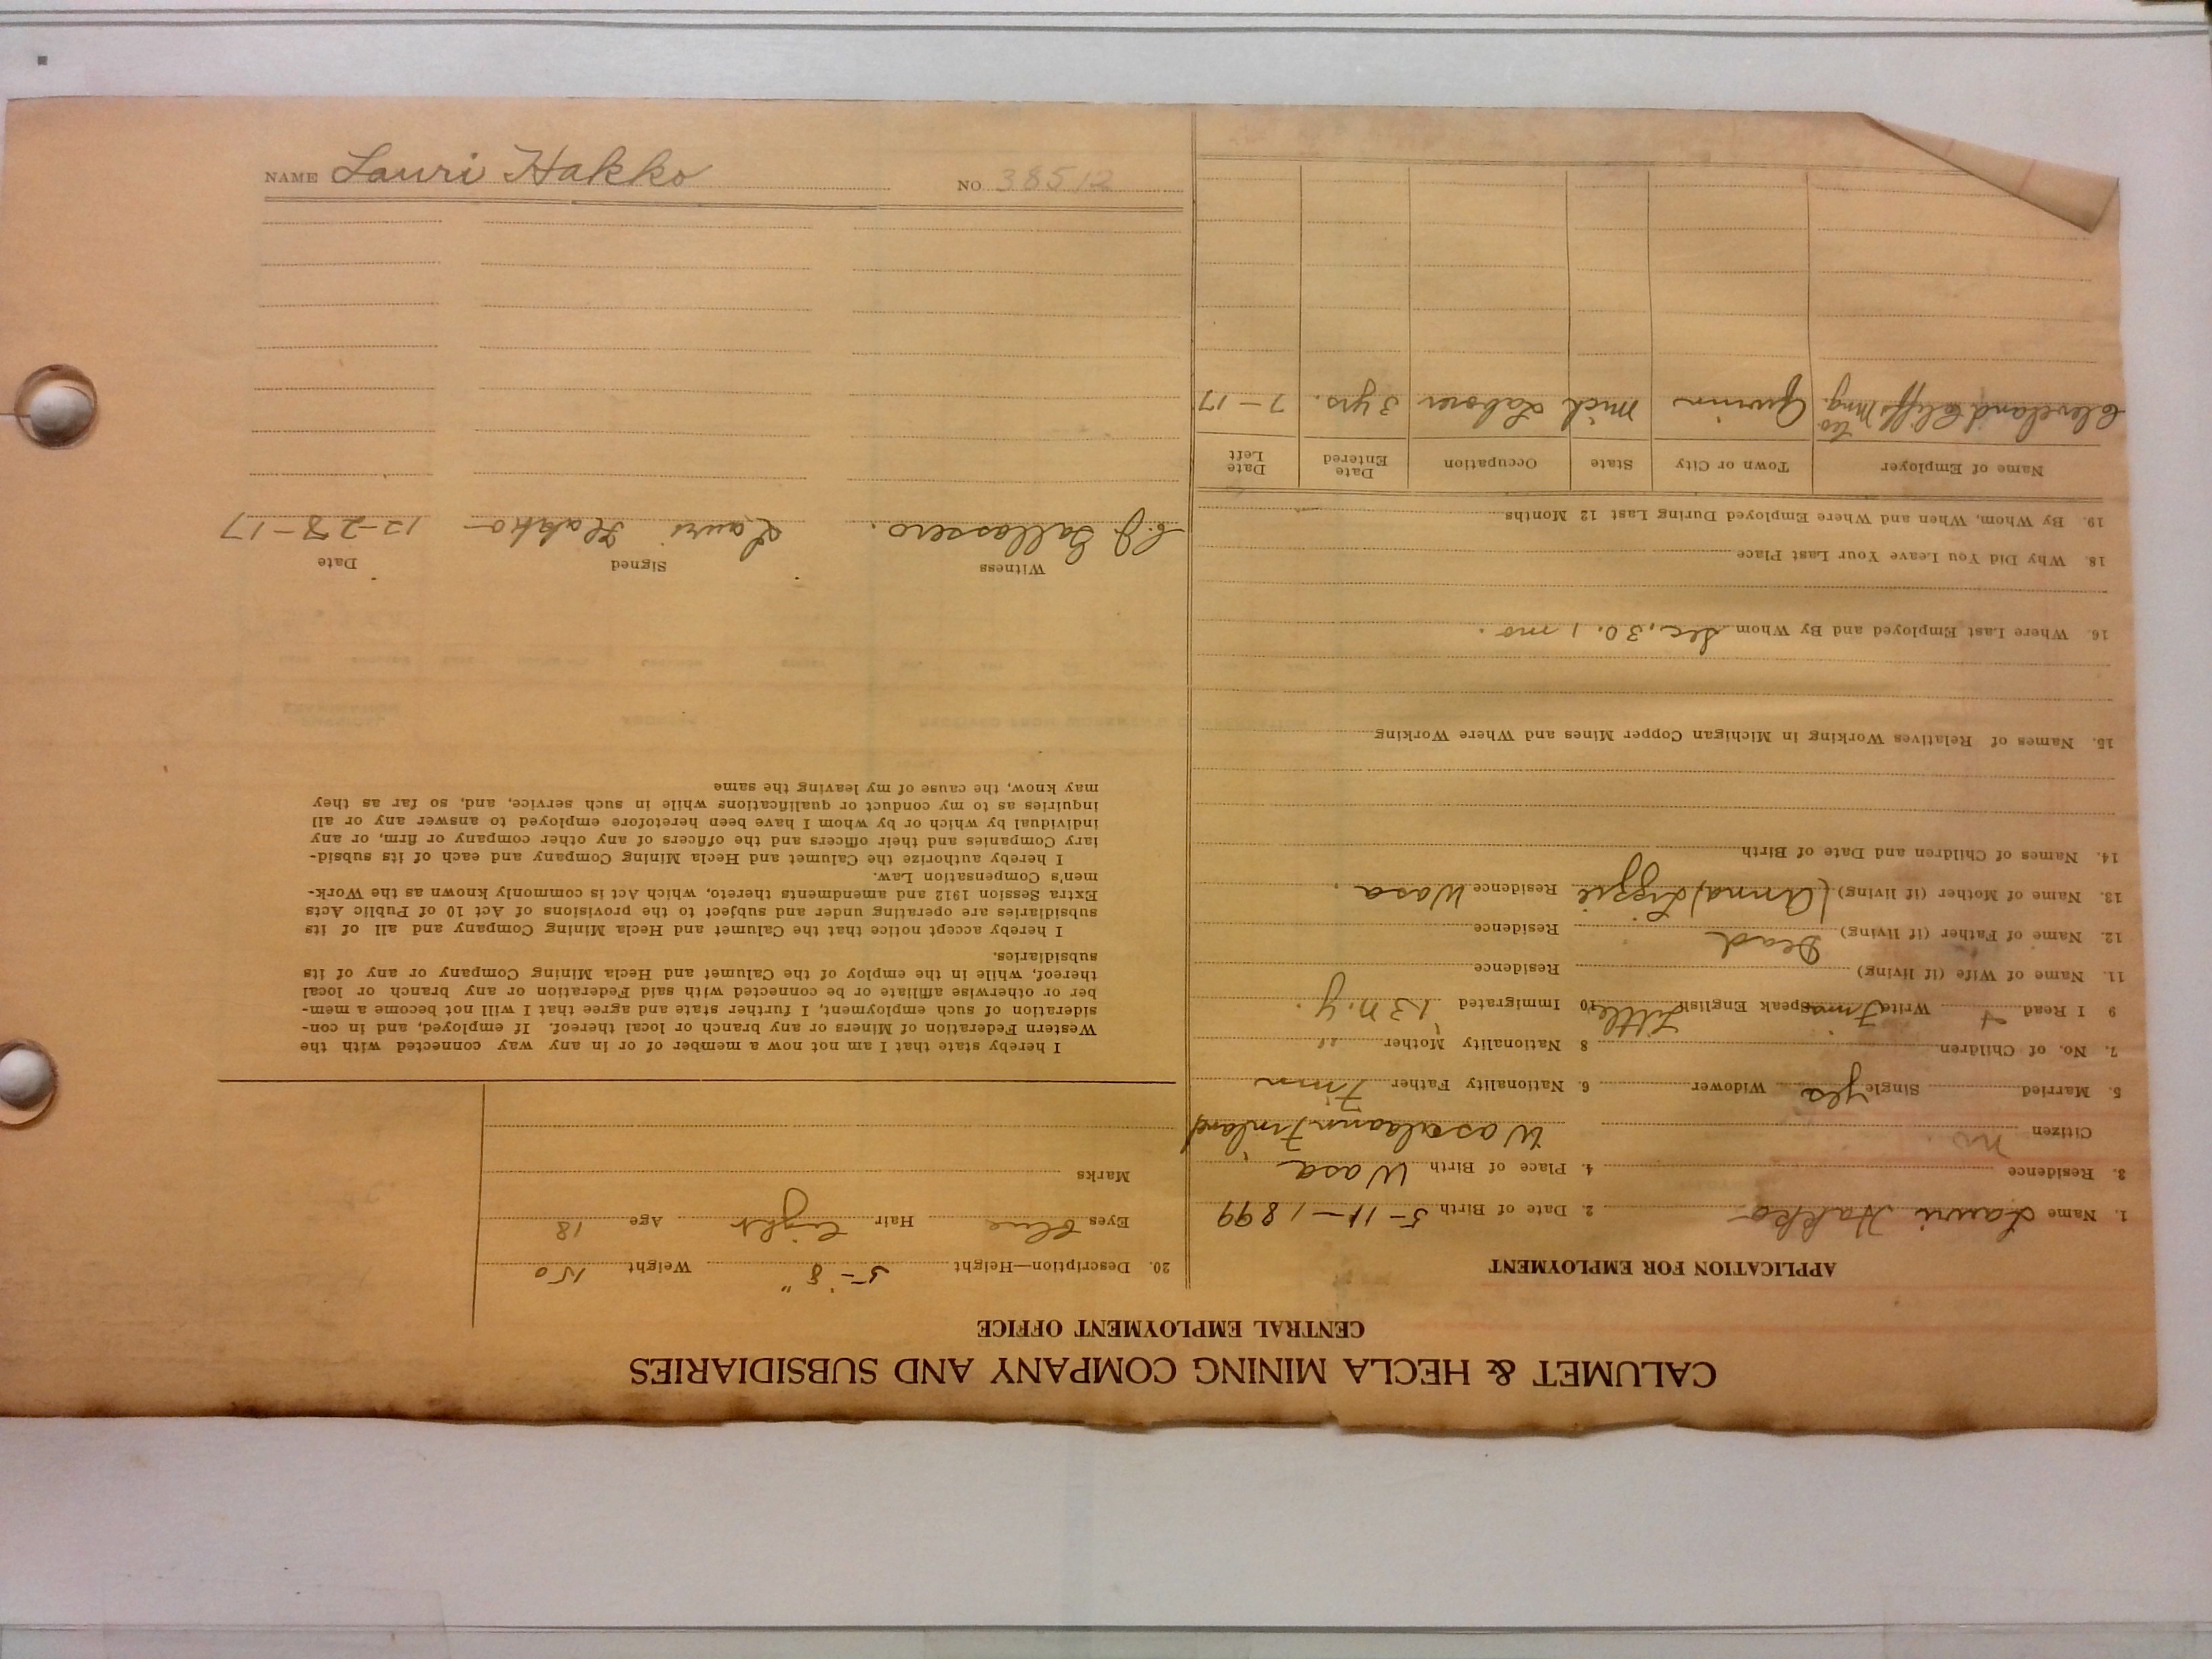 CALUMET & HECLA MINING COMPANY AND SUBSIDIARIES
CENTRAL EMPLOYMENT OFFICE
APPLICATION FOR EMPLOYMENT
1. Name Lauri Hakko 2. Date of Birth 5-11-1899
3. Residence 4. Place of Birth Wasa
Citizen no. Wasalaann Finland
5. Married Single yes Widower 6. Nationality Father Finn
7. No. of Children 8 Nationality Mother "
9 I Read + Write Finn Speak English Little 10 Immigrated 13 n.y.
11. Name of Wife (if living) Residence
12. Name of Father (if living) Dead Residence
13. Name of Mother (if living) (Anna) Lizzie Residence Wasa.
14. Names of Children and Date of Birth
15. Names of Relatives Working in Michigan Copper Mines and Where Working
16. Where Last Employed and By Whom Sec, 30. 1 mo.
18. Why Did You Leave Your Last Place
19. By Whom, When and Where Employed During Last 12 Months
Name of Employer Town or City State Occupation Date Entered Date Left
Cleveland Cliffs Mng. Co Gwinn Mich Laborer 3 yrs. 7-17
20. Description—Height 5'-8" Weight 150
Eyes blue Hair light Age 18
Marks
I hereby state that I am not now a member of or in any way connected with the
Western Federation of Miners or any branch or local thereof. If employed, and in con-
sideration of such employment, I further state and agree that I will not become a mem-
ber or otherwise affiliate or be connected with said Federation or any branch or local
thereof, while in the employ of the Calumet and Hecla Mining Company or any of its
subsidiaries.
I hereby accept notice that the Calumet and Hecla Mining Company and all of its
subsidiaries are operating under and subject to the provisions of Act 10 of Public Acts
Extra Session 1912 and amendments thereto, which Act is commonly known as the Work-
men's Compensation Law.
I hereby authorize the Calumet and Hecla Mining Company and each of its subsid-
iary Companies and their officers and the officers of any other company or firm, or any
individual by which or by whom I have been heretofore employed to answer any or all
inquiries as to my conduct or qualifications while in such service, and, so far as they
may know, the cause of my leaving the same
Witness Signed Date
Lauri Hakko 12-28-17
NAME Lauri Hakko NO. 38512